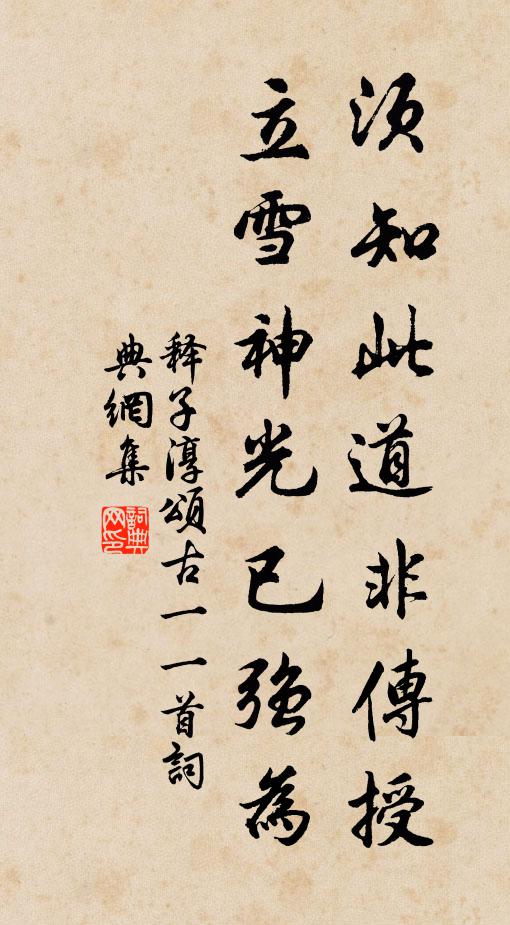 須知此道非傳授
立雪神光已強為
释子淳頌古一一首詞
典網集
詞典
网印